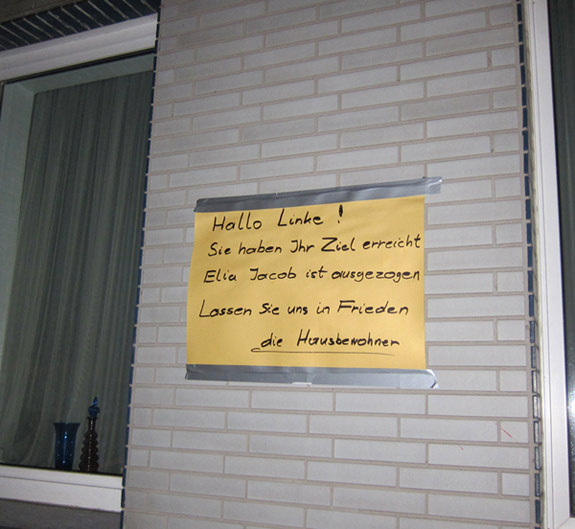 Hallo Linke !
Sie haben Ihr Ziel erreicht
Elia Jacob ist ausgezogen
Lassen Sie uns in Frieden
die Hausbewohner